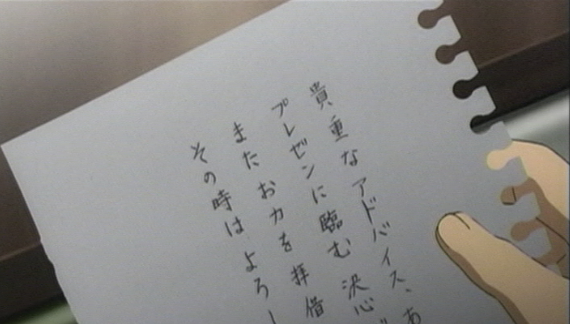 貴重なアドバイス、あ
プレゼンに臨む決心
またお力を拝借
その時は、よろし